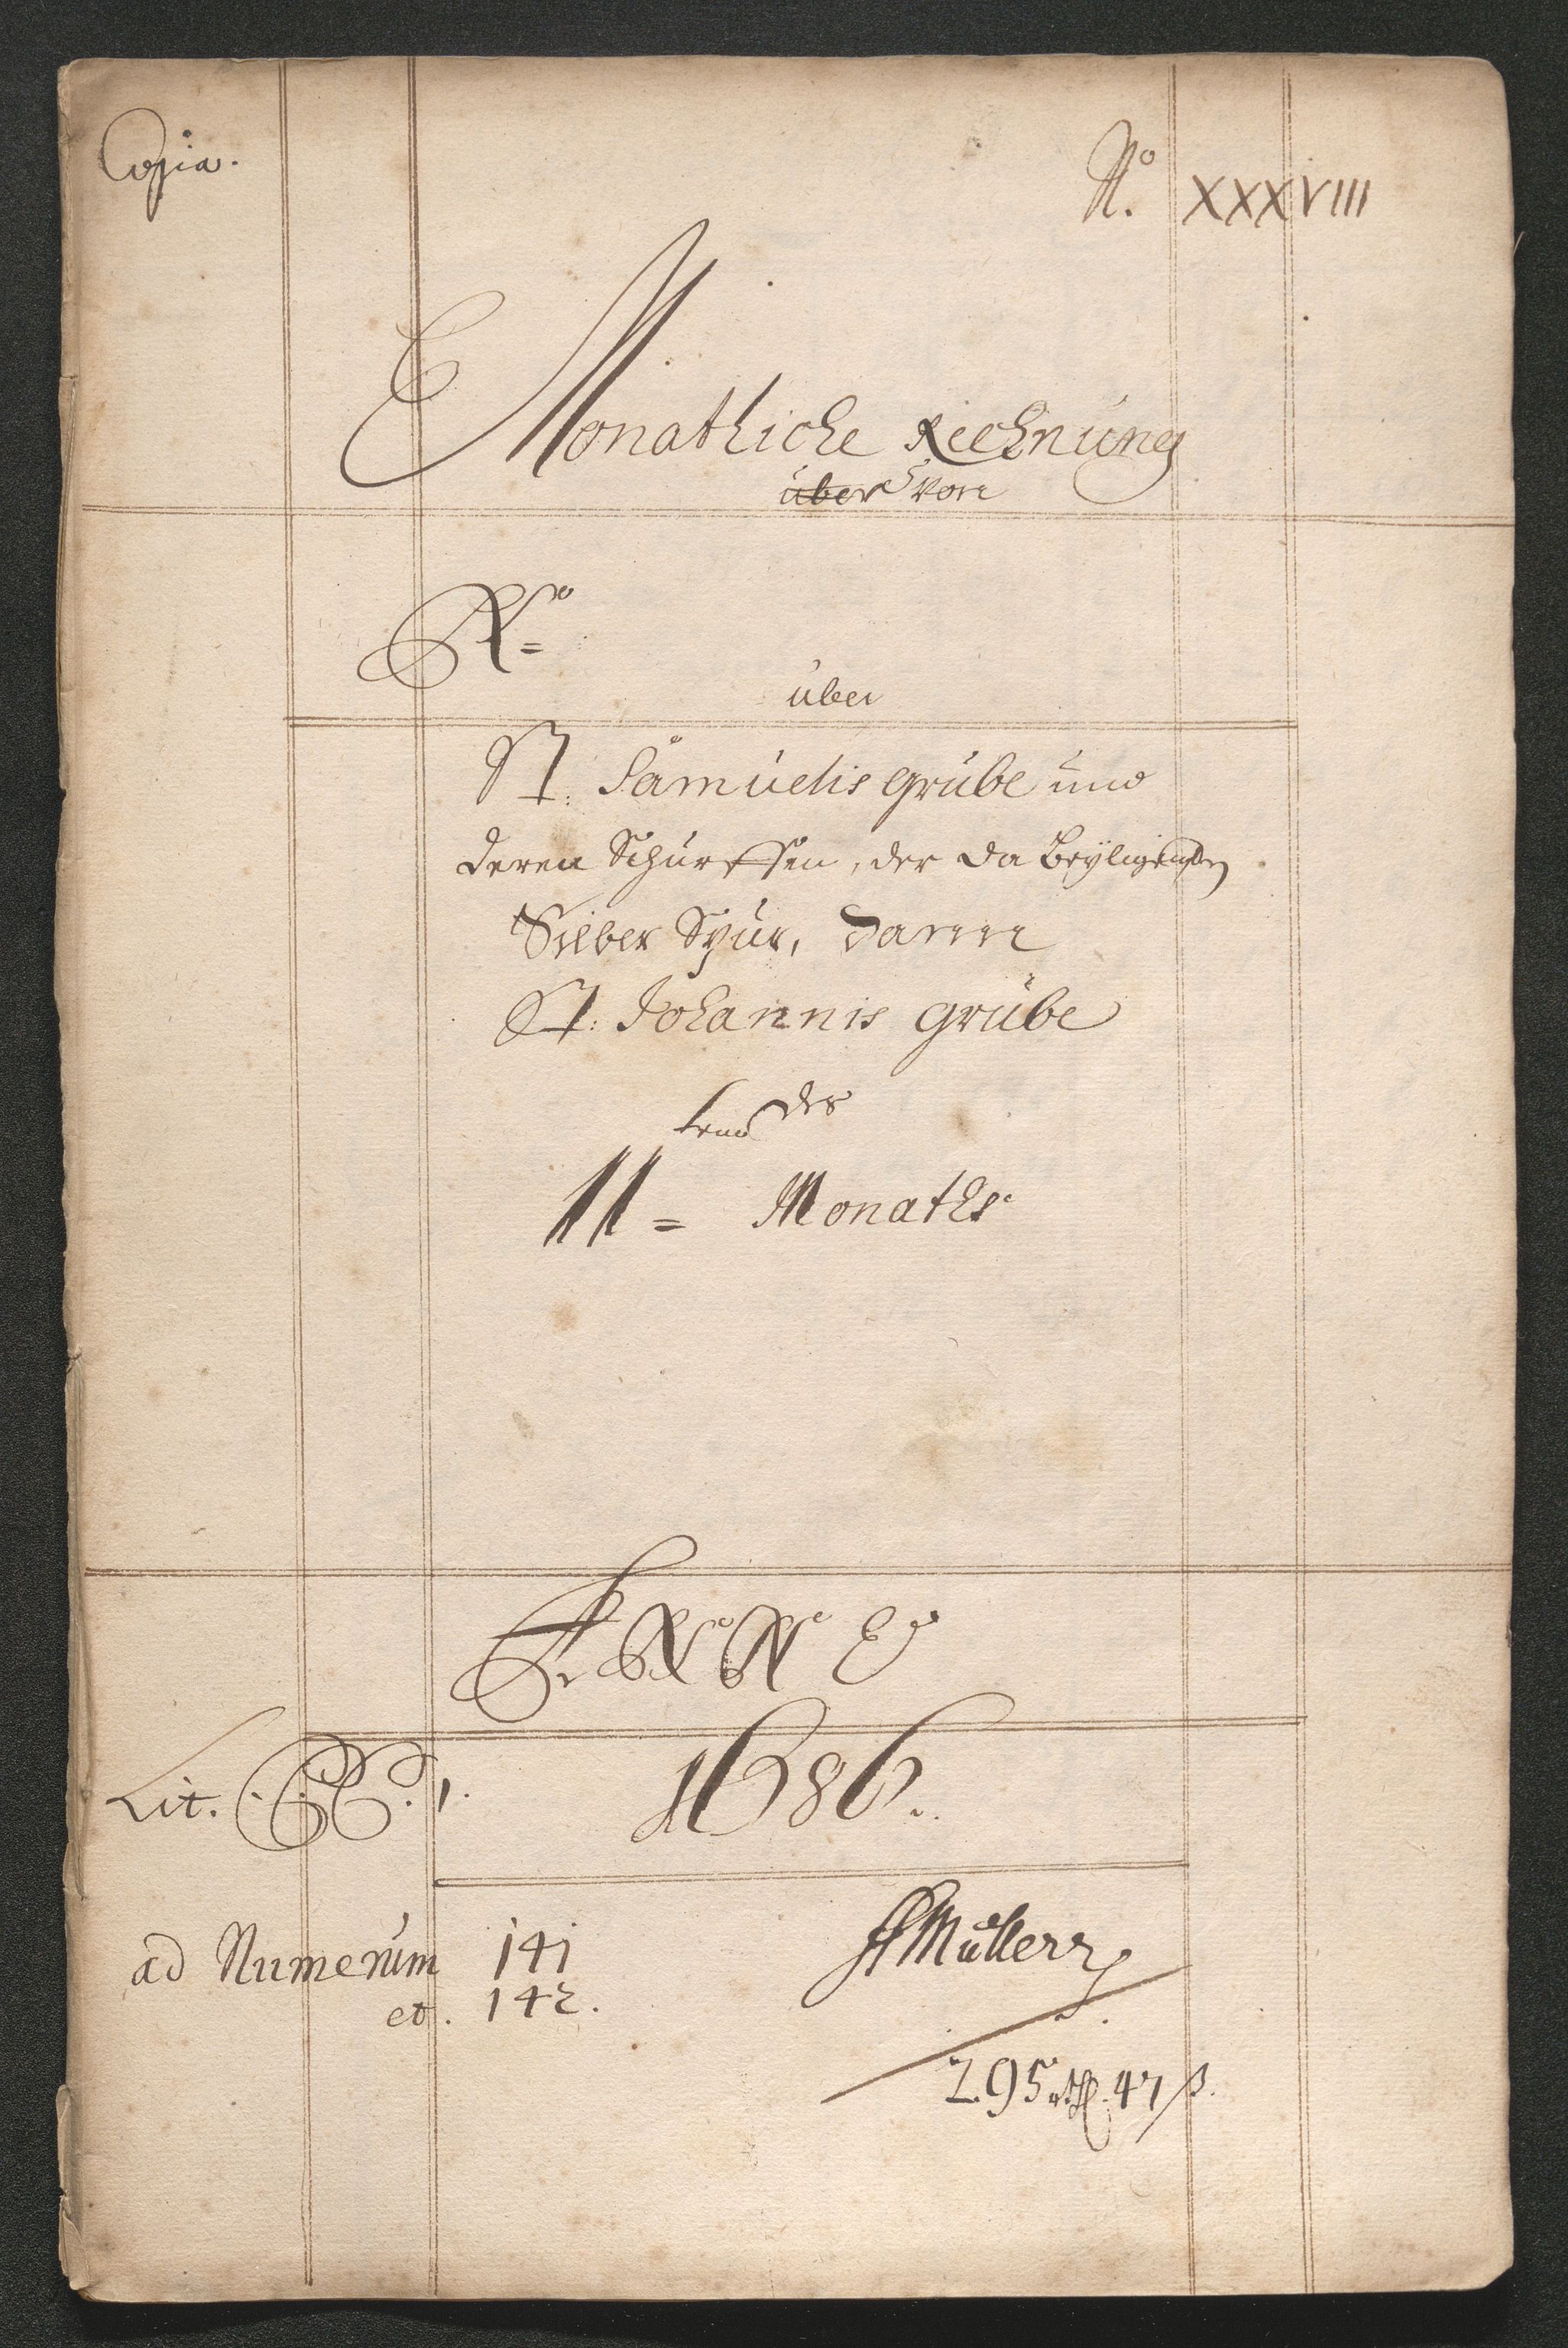 Copia.
No. XXXVIII
Monathliche Rechnung
über von
No=
über
St: Samuelis Grube und
deren Schürffen, der da Beyligenden
Silber Spur, dann
St: Johannis Grube
des
11= Monaths
1686.
Lit. CC. 1.
ad Numerum 141
et. 142.
Müller
295 rthl. 47 ß.